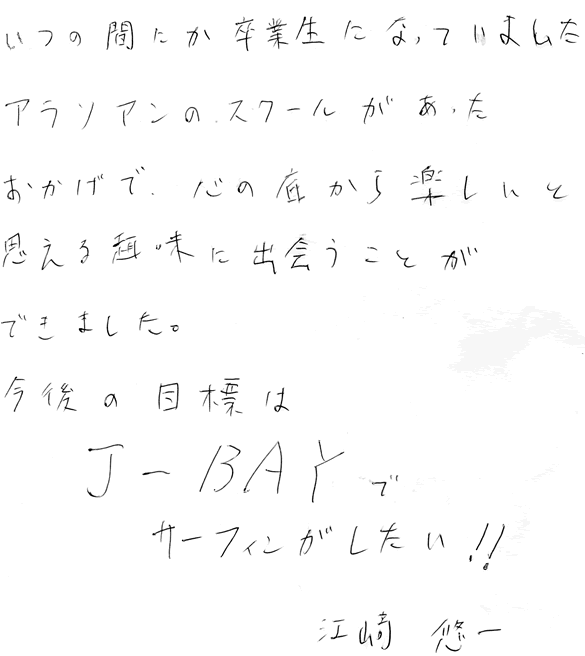 いつの間にか卒業生になっていました
アラソアンのスクールがあった
おかげで、心の底から楽しいと
思える趣味に出会うことが
できました。
今後の目標は
J-BAYで
サーフィンがしたい!!
江崎 悠一